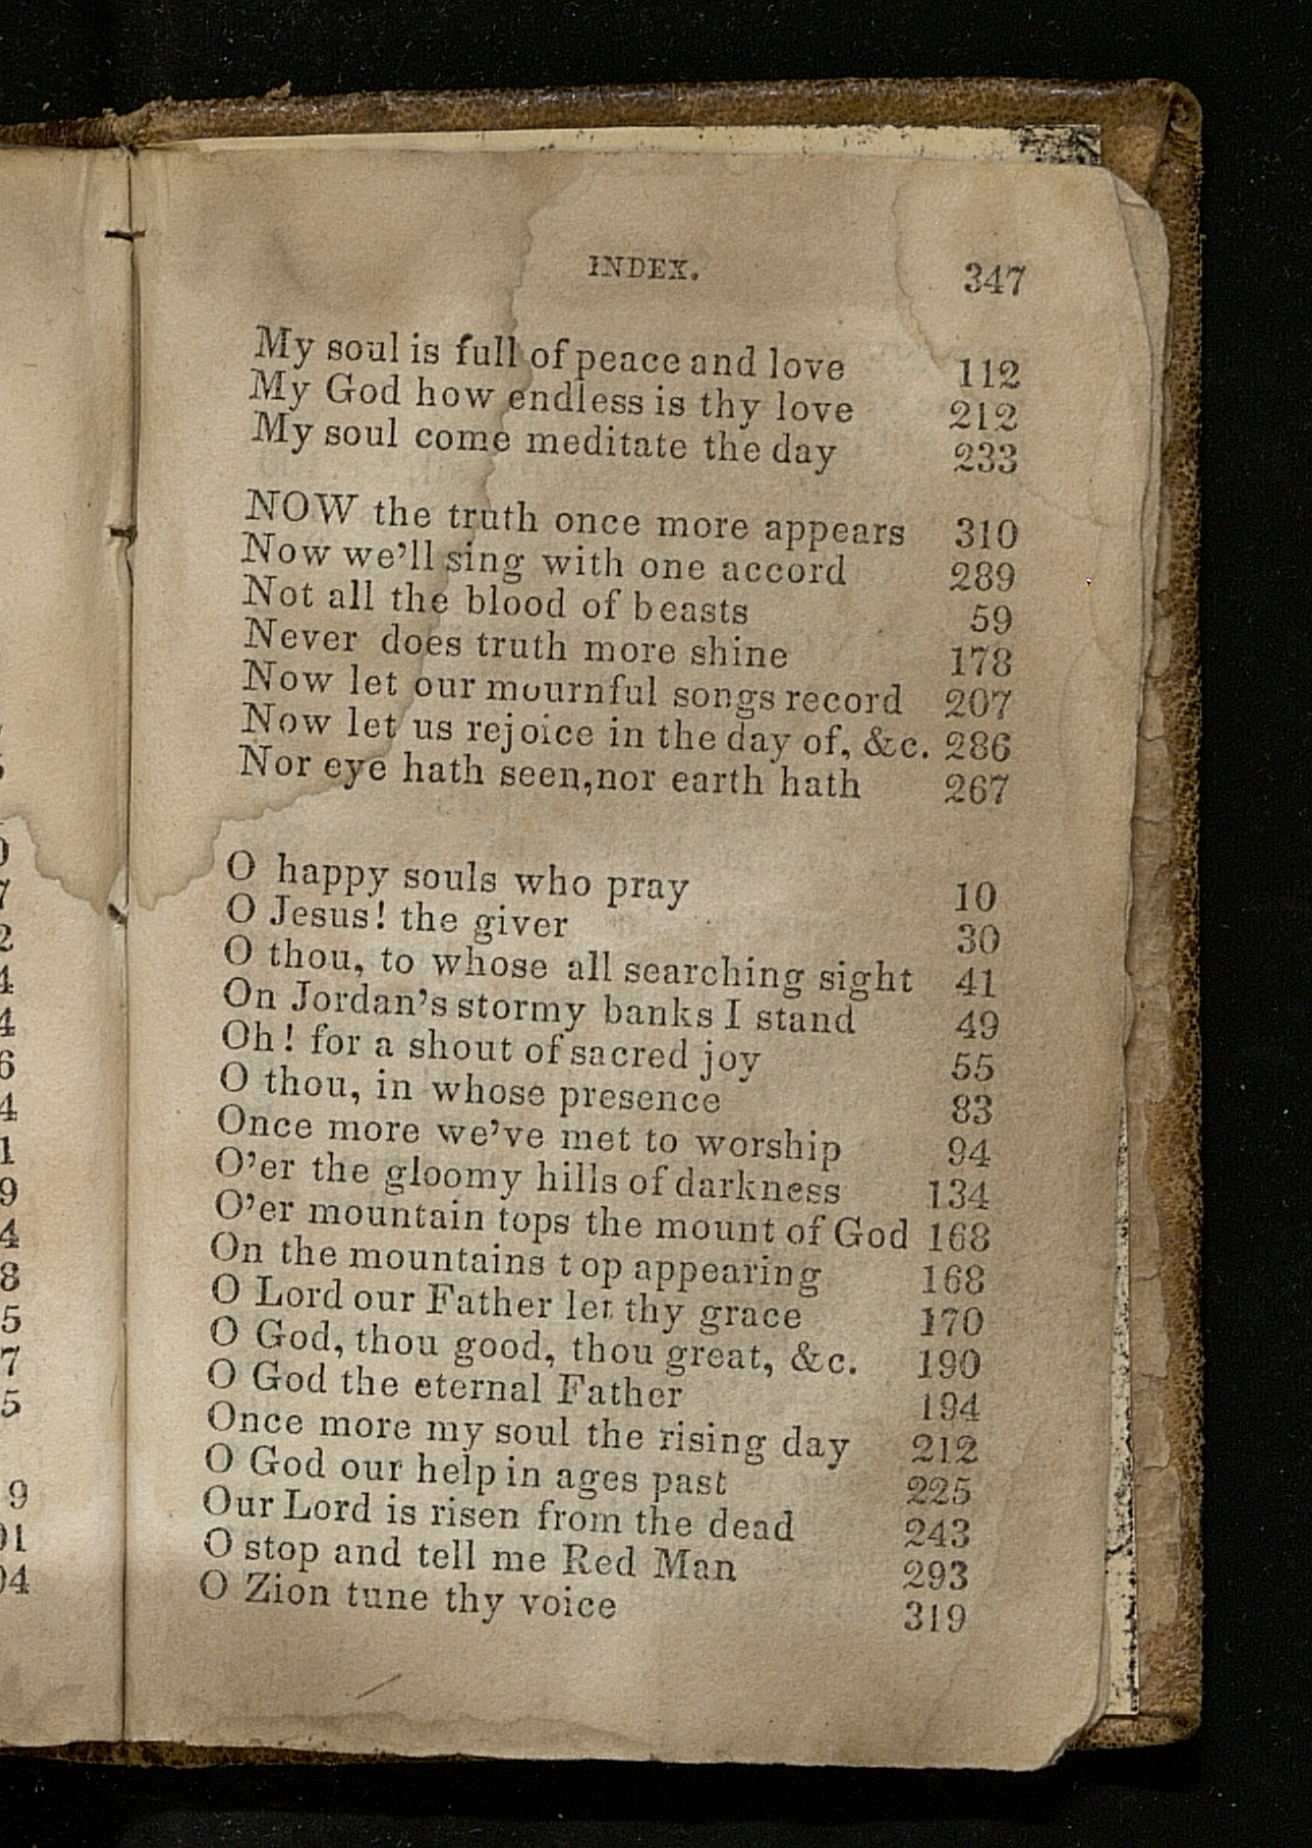 INDEX. 347
My soul is full of peace and love 112
My God how endless is thy love 212
My soul come meditate the day 233
NOW the truth once more appears 310
Now we'll sing with one accord 289
Not all the blood of beasts 59
Never does truth more shine 178
Now let our mournful songs record 207
Now let us rejoice in the day of, &c. 286
Nor eye hath seen,nor earth hath 267
O happy souls who pray 10
O Jesus! the giver 30
O thou, to whose all searching sight 41
On Jordan's stormy banks I stand 49
Oh! for a shout of sacred joy 55
O thou, in whose presence 83
Once more we've met to worship 94
O'er the gloomy hills of darkness 134
O'er mountain tops the mount of God 168
On the mountains top appearing 168
O Lord our Father let thy grace 170
O God, thou good, thou great, &c. 190
O God the eternal Father 194
Once more my soul the rising day 212
O God our help in ages past 225
Our Lord is risen from the dead 243
O stop and tell me Red Man 293
O Zion tune thy voice 319